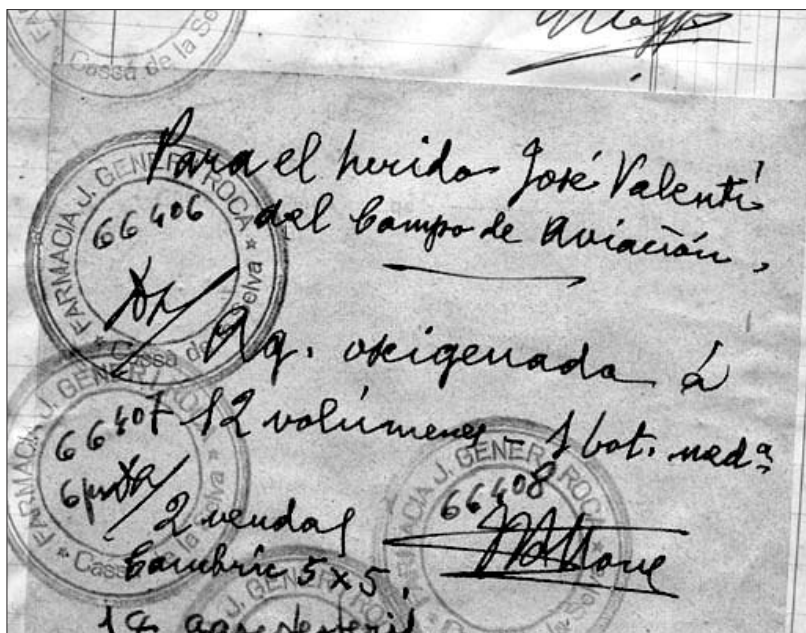 Cassá de la Se
Para el herido José Valentí
del Campo de Aviación.
FARMACIA J. GENER ROCA
Cassá de Selva
66406
Aq. oxigenada á
12 volúmenes - 1 bot. med.ª
FARMACIA J. GENER ROCA
Cassá de la Selva
66407
2 vendas
Cambric 5x5.
FARMACIA J. GENER ROCA
66408
J. GENER ROCA